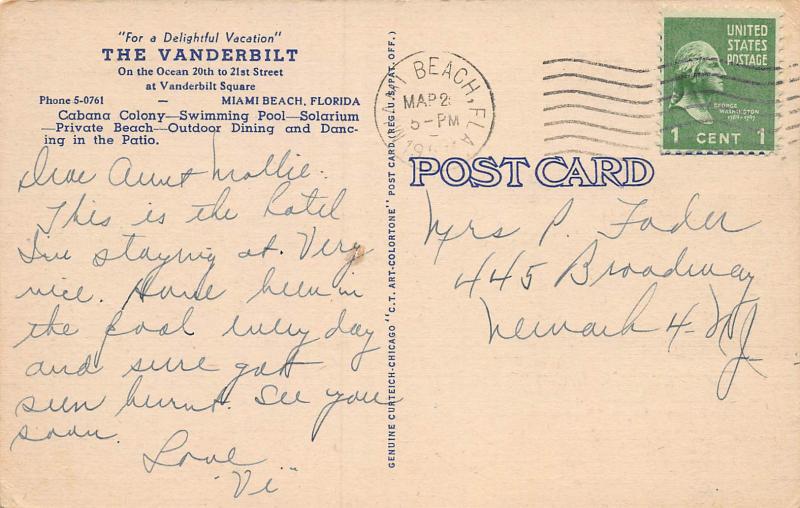 "For a Delightful Vacation"
THE VANDERBILT
On the Ocean 20th to 21st Street
at Vanderbilt Square
Phone 5-0761 — MIAMI BEACH, FLORIDA
Cabana Colony—Swimming Pool—Solarium
—Private Beach—Outdoor Dining and Danc-
ing in the Patio.
Dear Aunt Mollie.
This is the hotel
I'm staying at. Very
nice. Have been in
the pool every day
and sure got
sun burnt. See you
soon.
Love
"Vi"
GENUINE CURTEICH-CHICAGO "C.T. ART-COLORTONE" POST CARD (REG. U.S. PAT. OFF.)
BEACH, FLA
MAR 2
5-PM
UNITED
STATES
POSTAGE
GEORGE
WASHINGTON
1789-1797
1 CENT 1
POST CARD
Mrs P. Fader
445 Broadway
Newark 4- NJ